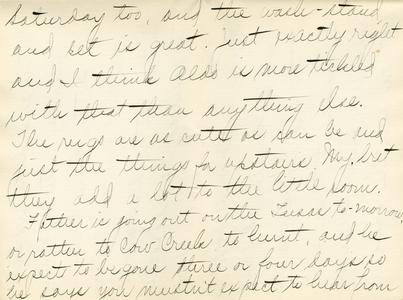 Saturday too, and the wash-stand
and set is great. Just exactly right
and I think Aldo is more tickled
with that than anything else.
The rugs are as cute as can be and
just the things for upstairs. My, bet
they add a lot to the little room.
Father is going out on the Texas to-morrow,
or rather to Cow Creek to hunt, and he
expects to be gone three or four days so
he says you mustn't expect to hear from